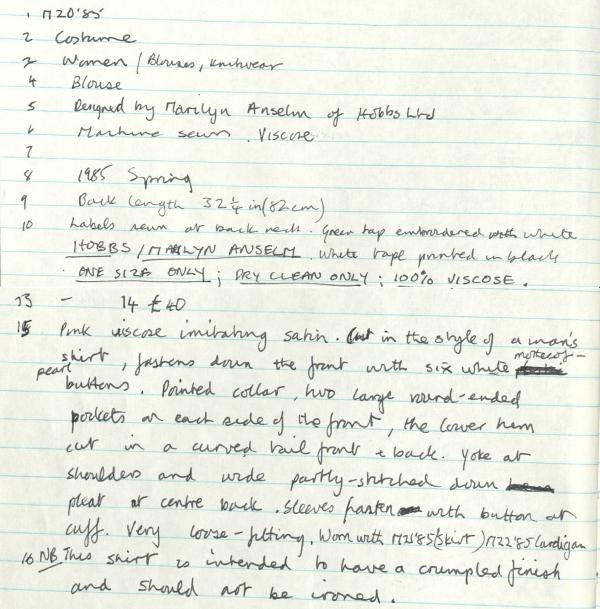 1 M20'85
2 Costume
3 Women / Blouses, knitwear
4 Blouse
5 Designed by Marilyn Anselm of Hobbs Ltd
6 Machine sewn. Viscose
7
8 1985 Spring
9 Back length 32 1/4 in (82 cm)
10 Labels sewn at back neck. Green tap embroidered with white
HOBBS / MARILYN ANSELM. White tape printed in black
ONE SIZE ONLY; DRY CLEAN ONLY; 100% VISCOSE.
13 - 14 £40
15 Pink viscose imitating satin. Cut in the style of a man's
shirt, fastens down the front with six white mother-of-
pearl
buttons. Pointed collar, two large round-ended
pockets on each side of the front, the lower hem
cut in a curved tail front + back. Yoke at
shoulders and wide partly-stitched down
pleat at centre back. Sleeves fasten with button at
cuff. Very loose-fitting. Worn with M21'85 (skirt) M22'85 Cardigan
16 NB This shirt is intended to have a crumpled finish
and should not be ironed.